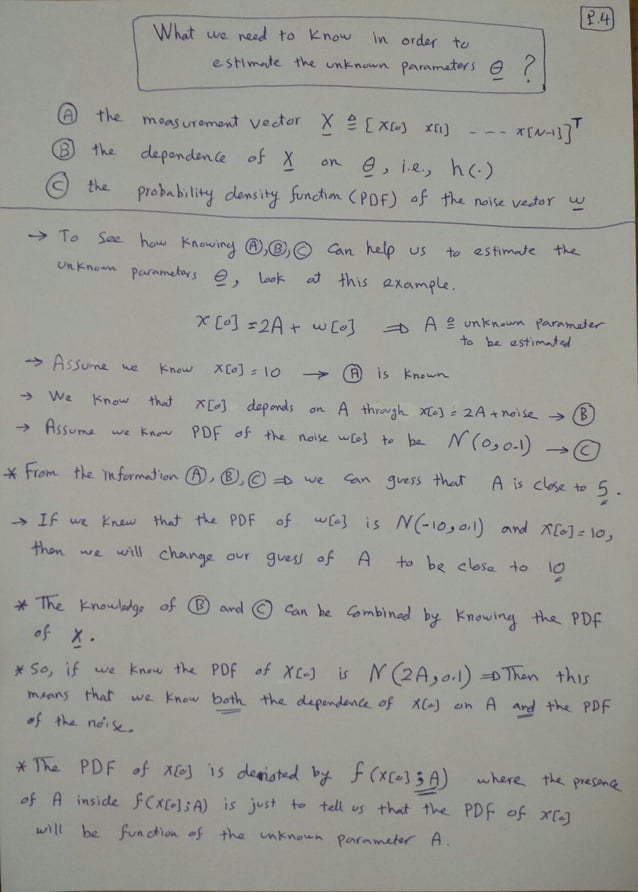 P.4
What we need to know in order to
estimate the unknown parameters θ ?
Ⓐ the measurement vector X ≜ [ x[0] x[1] - - - x[N-1] ]ᵀ
Ⓑ the dependence of X on θ, i.e., h(.)
Ⓒ the probability density function (PDF) of the noise vector w
→ To see how knowing Ⓐ,Ⓑ,Ⓒ can help us to estimate the
unknown parameters θ, look at this example.
x[0] = 2A + w[0] ⇒ A ≜ unknown parameter
to be estimated
→ Assume we know x[0] = 10 → Ⓐ is known
→ We know that x[0] depends on A through x[0] = 2A + noise → Ⓑ
→ Assume we know PDF of the noise w[0] to be N(0,0.1) → Ⓒ
* From the information Ⓐ, Ⓑ, Ⓒ ⇒ we can guess that A is close to 5.
→ If we knew that the PDF of w[0] is N(-10,0.1) and x[0] = 10,
then we will change our guess of A to be close to 10
* The knowledge of Ⓑ and Ⓒ can be combined by knowing the PDF
of X.
* So, if we know the PDF of x[0] is N(2A,0.1) ⇒ Then this
means that we know both the dependence of x[0] on A and the PDF
of the noise.
* The PDF of x[0] is denoted by f(x[0];A) where the presence
of A inside f(x[0];A) is just to tell us that the PDF of x[0]
will be function of the unknown parameter A.